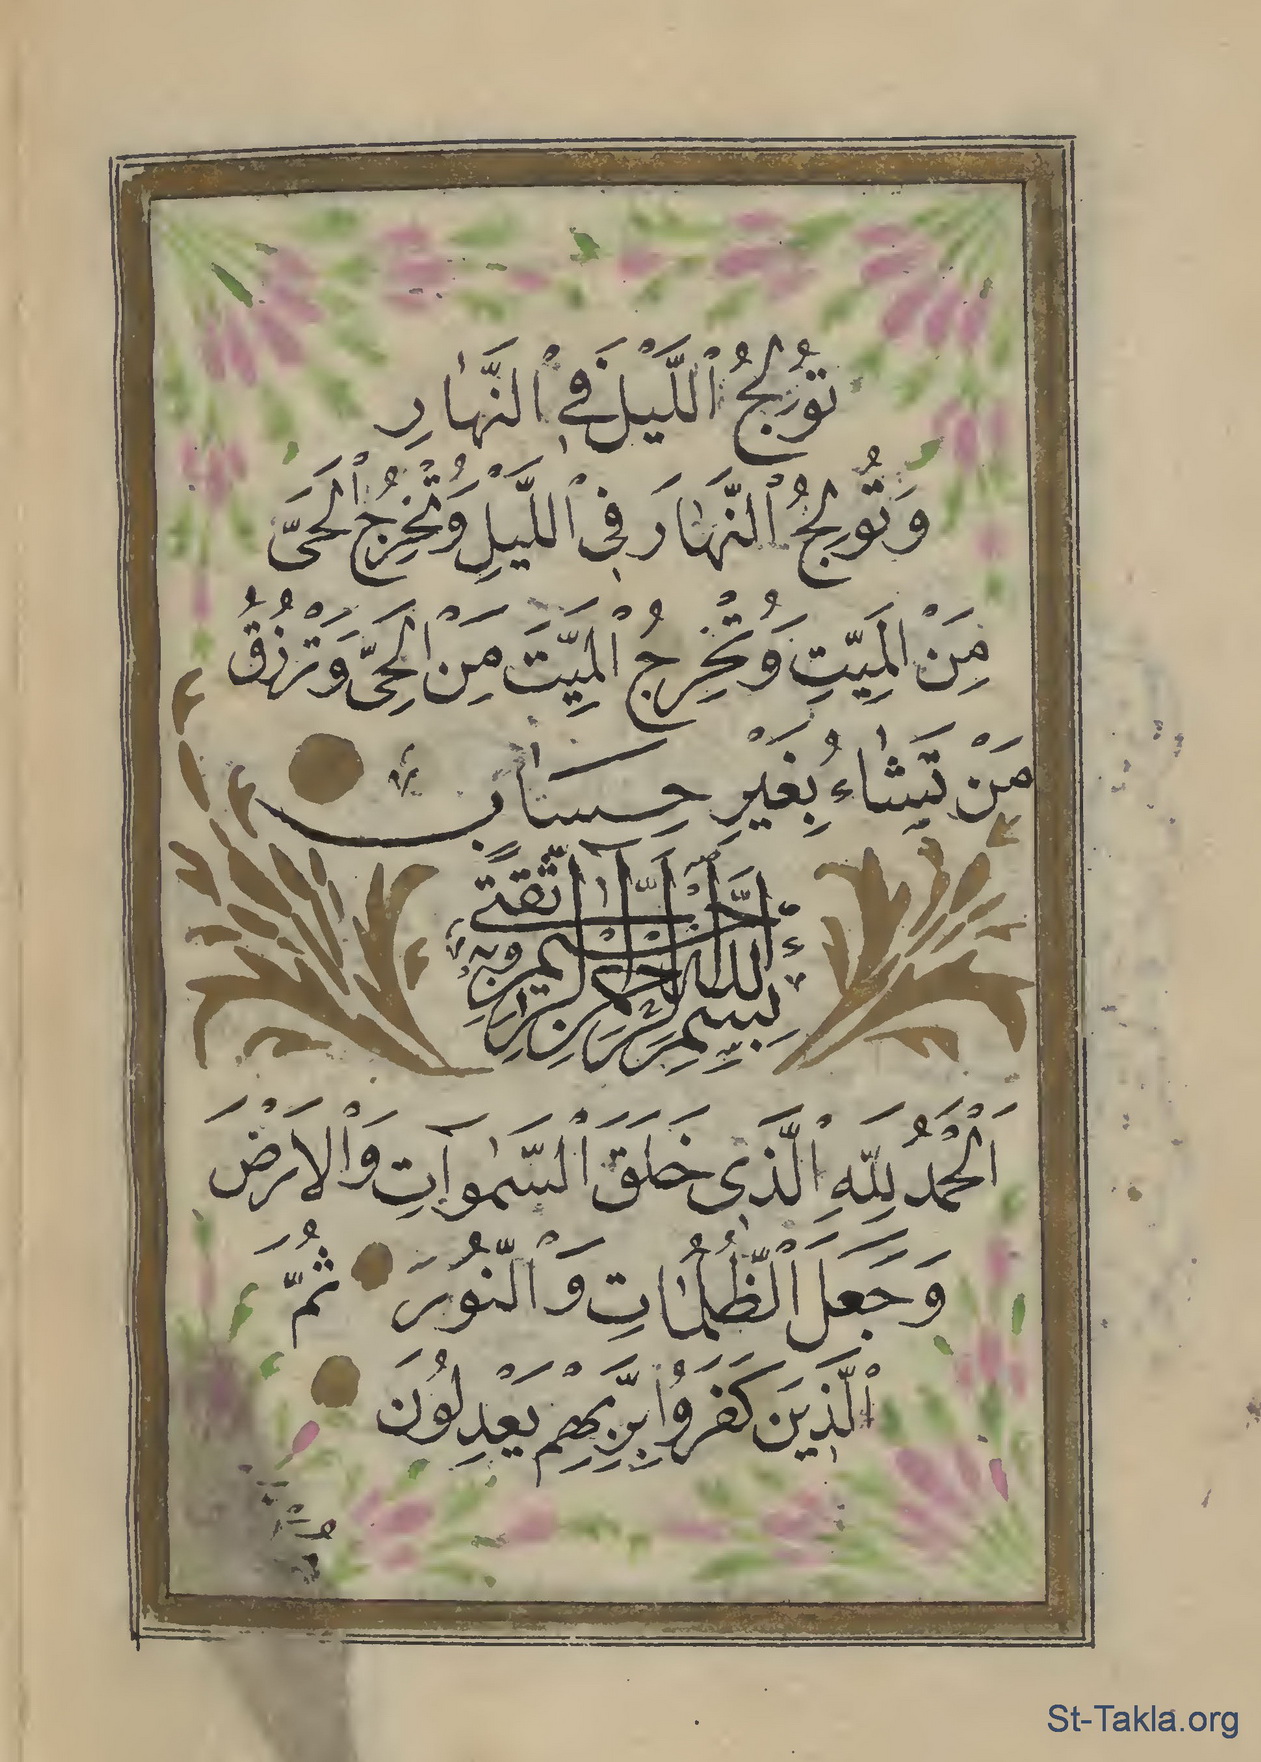 تُورِلجُ ٱللَّيْلَ فِي ٱلنَّهَارِ
وَتُورِلجُ ٱلنَّهَارَ فِي ٱللَّيْلِ وَتُخْرِجُ ٱلْحَيَّ
مِنَ الْمَيِّتِ وَتُخْرِجُ الْمَيِّتَ مِنَ الْحَيِّ وَتَرْزُقُ
مَنْ تَشَاءُ بِغَيْرِ حِسَابٍ
بِسْمِ اللهِ الرَّحْمٰنِ الرَّحِيمِ
اَلْحَمْدُ لِلّٰهِ ٱلَّذِي خَلَقَ ٱلسَّمٰوَاتِ وَالْاَرْضَ
وَجَعَلَ ٱلظُّلُمَاتِ وَالنُّورَ ثُمَّ
ٱلَّذِينَ كَفَرُوا بِرَبِّهِمْ يَعْدِلُونَ
St-Takla.org